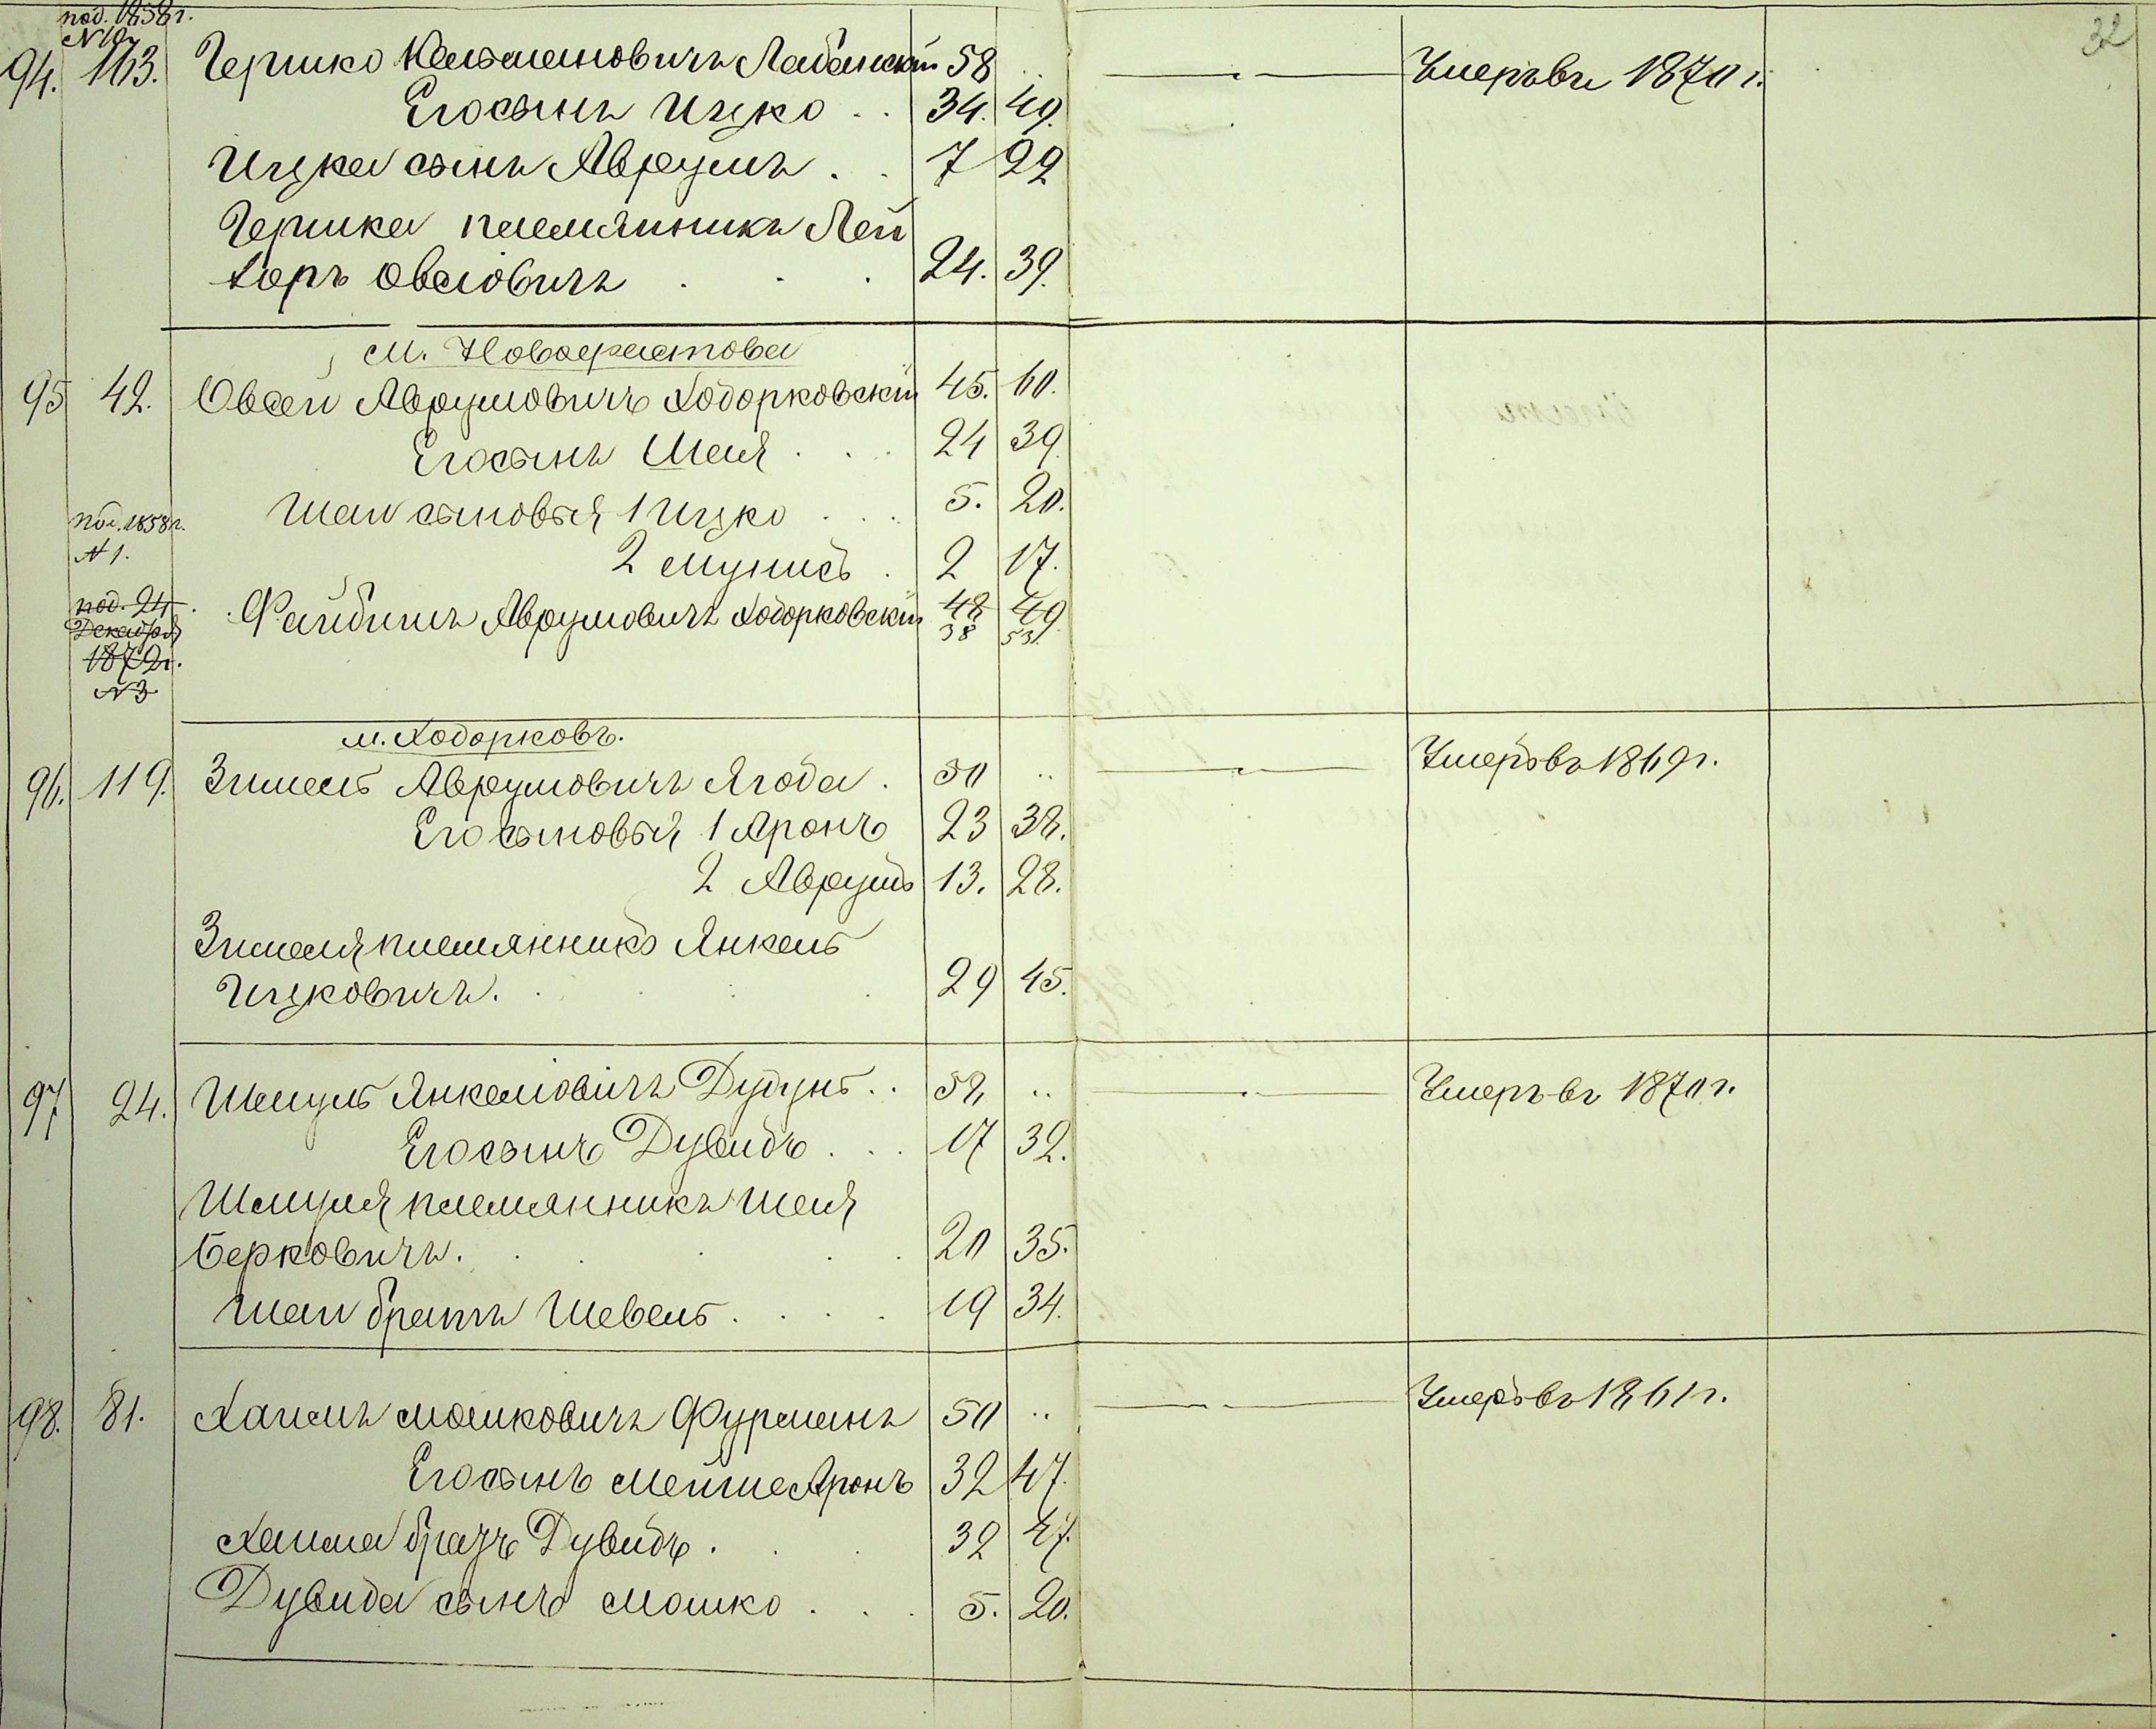 32
под. 1858 г.
94. 163. Гершко Кельмановичъ Лабанскій 58 .. Умеръ въ 1870 г.
Его сынъ Ицко . . 34. 49.
Ицка сынъ Аврумъ . . 7 22
Гершка племянникъ Лей
заръ Овсіовичъ . . . 24. 39.
м. Новофастова
95 42. Овсей Аврумовичъ Ходорковскій 45. 60.
Его сынъ Шая . . . 24 39
Шаи сыновья 1 Ицко . . . 5. 20.
под. 1858 г.
№ 1.
2 Мунись . 2 17.
под. 24
Декабря
1872 г.
№ 3
Файбишъ Аврумовичъ Ходорковскій 48 49
38 53.
м. Ходорковъ.
96. 119. Зимель Аврумовичъ Ягода . 50 .. Умеръ въ 1869 г.
Его сыновья 1 Аронъ 23 38.
2 Аврумъ 13. 28.
Зимеля племянникъ Янкель
Ицковичъ. . . . 29 45.
97 24. Шмуль Янкеліовичъ .. 52 .. Умеръ въ 1870 г.
Его сынъ Дувидъ . . . 17 32.
Шмуля племянникъ Шая
Берковичъ. . . . . 20 35.
Шаи братъ Шевель . . . . 19 34.
98. 81. Хаимъ Мошковичъ Фурманъ 50 .. Умеръ въ 1861 г.
Его сынъ Мейше Аронъ 32 47.
Хаима братъ Дувидъ . . . 32 47.
Дувида сынъ Мошко . . . 5. 20.